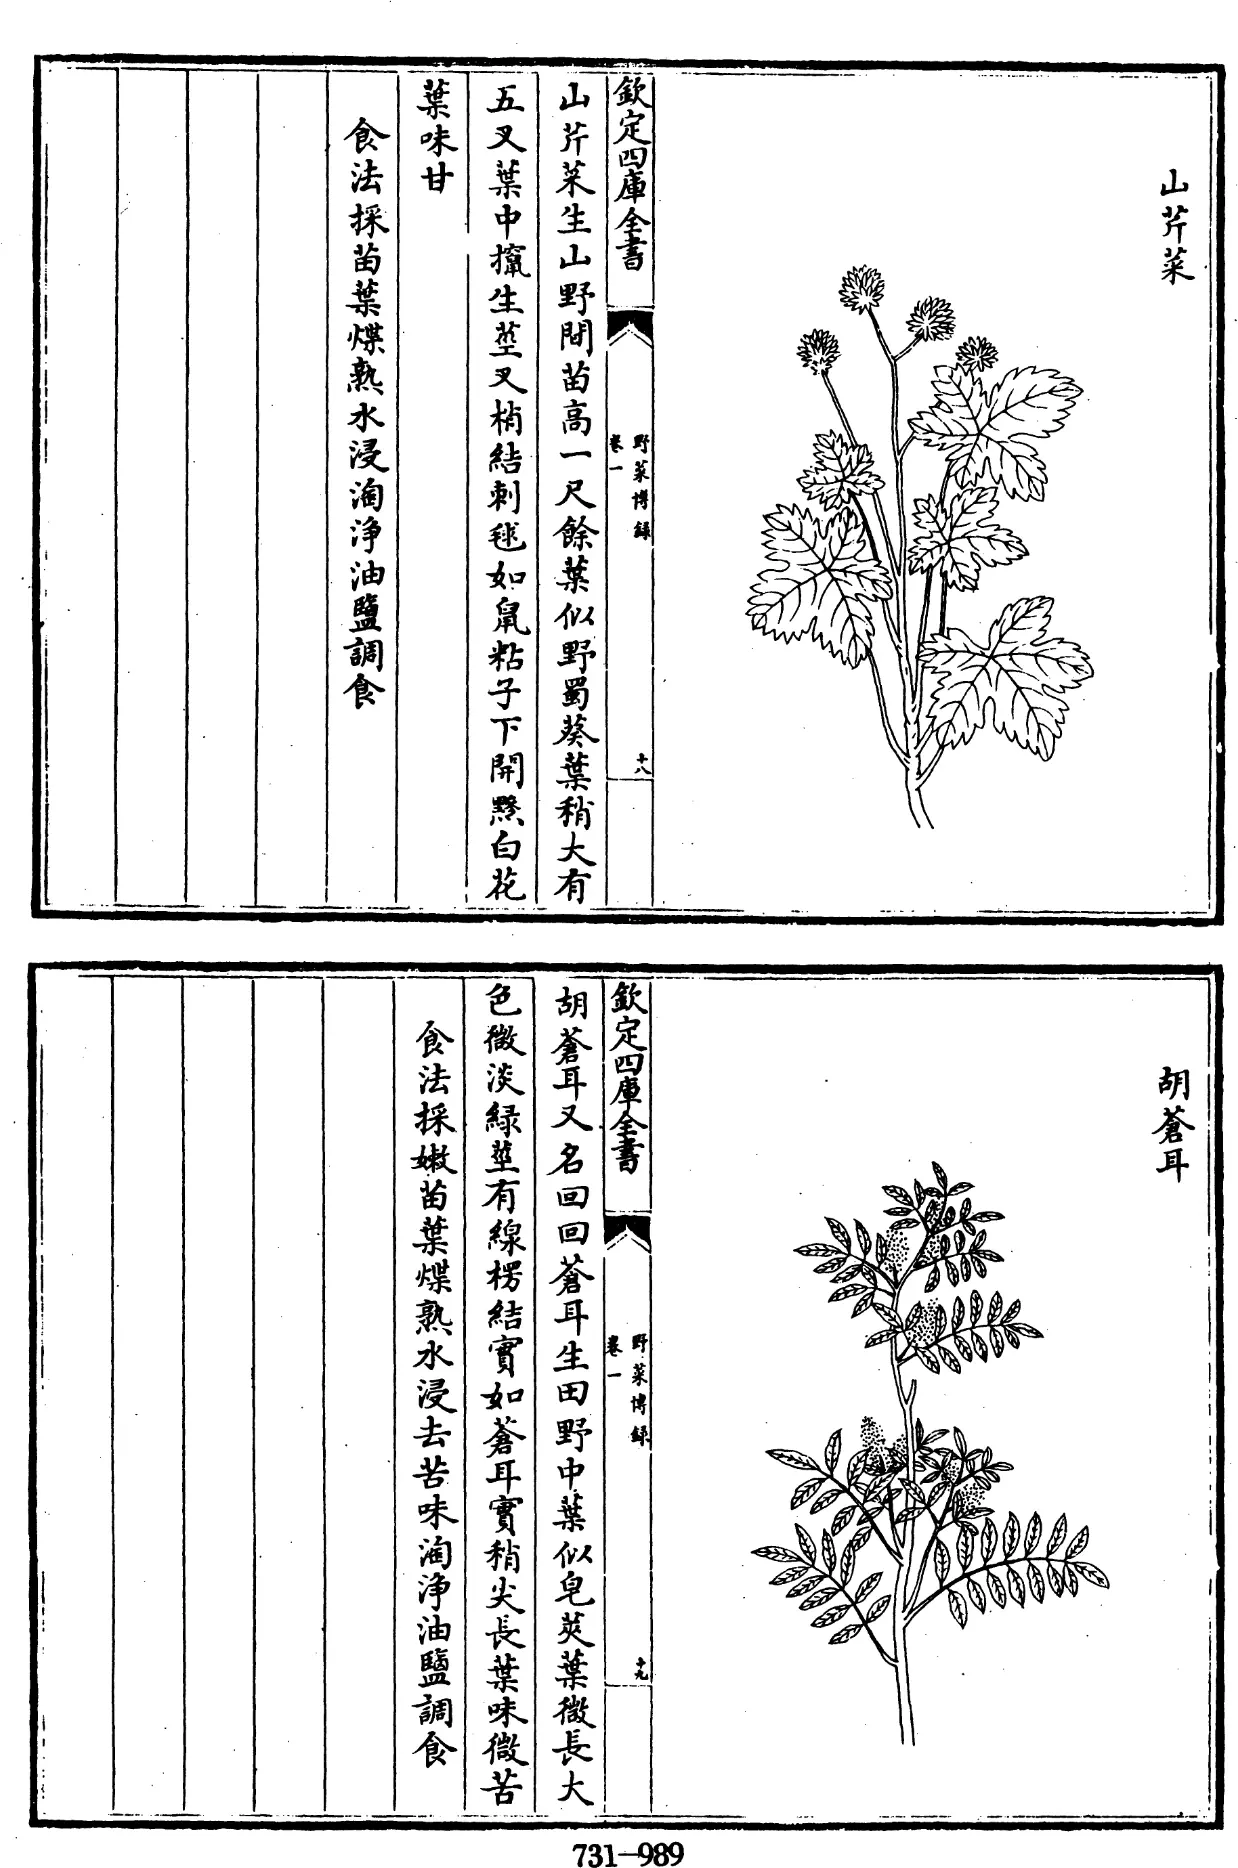 山芹菜
欽定四庫全書
野菜博録
卷一
十八
山芹菜生山野間苗高一尺餘葉似野蜀葵葉稍大有
五叉葉中攛生莖叉梢結刺毬如鼠粘子下開㸃白花
葉味甘
食法採苗葉煠熟水浸淘浄油鹽調食
胡蒼耳
欽定四庫全書
野菜博録
卷一
十九
胡蒼耳又名回回蒼耳生田野中葉似皂莢葉微長大
色微淡緑莖有線楞結實如蒼耳實稍尖長葉味微苦
食法採嫩苗葉煠熟水浸去苦味淘浄油鹽調食
731-989